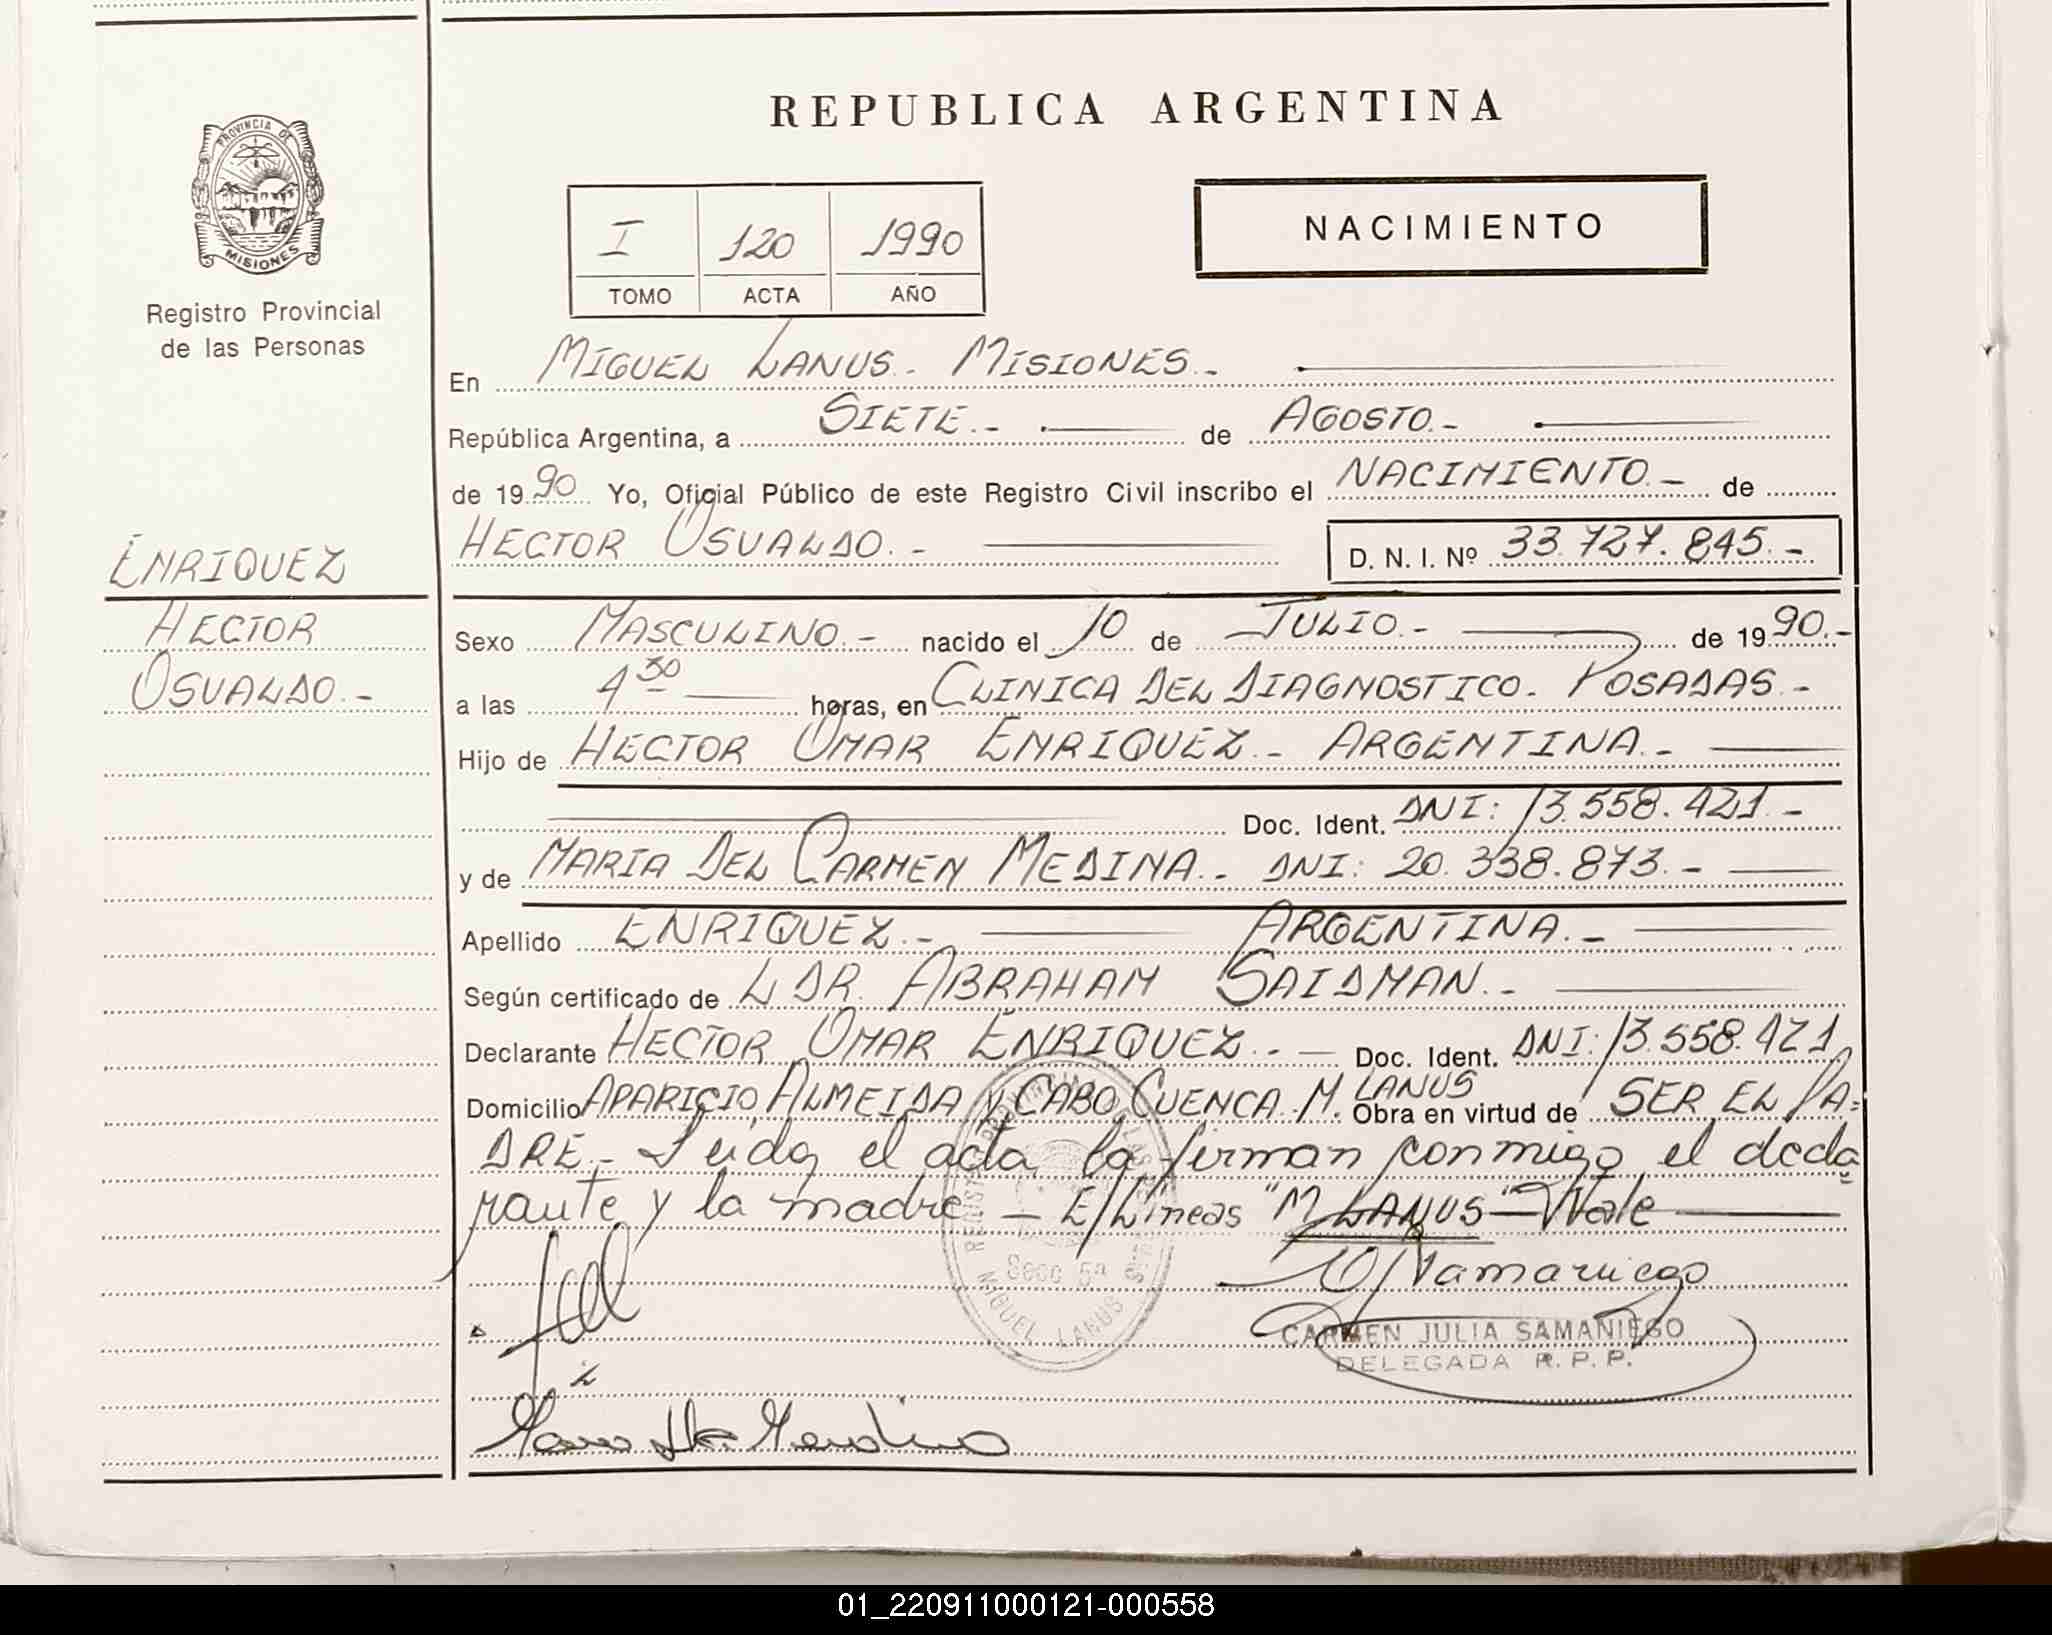 REPUBLICA ARGENTINA
PROVINCIA DE
MISIONES
Registro Provincial
de las Personas
I 120 1990
TOMO ACTA AÑO
NACIMIENTO
En MIGUEL LANUS. MISIONES.-
República Argentina, a SIETE.- de AGOSTO.-
de 1990 Yo, Oficial Público de este Registro Civil inscribo el NACIMIENTO.- de
HECTOR OSVALDO.- D. N. I. Nº 33.727.845.-
ENRIQUEZ
HECTOR
OSVALDO.-
Sexo MASCULINO.- nacido el 10 de JULIO.- de 1990.-
a las 4 30 horas, en CLINICA DEL DIAGNOSTICO. POSADAS.-
Hijo de HECTOR OMAR ENRIQUEZ.- ARGENTINA.-
Doc. Ident. DNI: 13.558.421.-
y de MARIA DEL CARMEN MEDINA.- DNI: 20.338.873.-
Apellido ENRIQUEZ.- ARGENTINA.-
Según certificado de L DR. ABRAHAM SAIDMAN.-
Declarante HECTOR OMAR ENRIQUEZ.- Doc. Ident. DNI: 13.558.421
Domicilio APARICIO ALMEIDA Y CABO CUENCA. M. LANUS Obra en virtud de SER EL PA=
DRE.- Leida el acta la firman conmigo el decla
rante y la madre — E/Líneas "M LANUS" Vale
Secc 5ª
MIGUEL LANUS
CARMEN JULIA SAMANIEGO
DELEGADA R. P. P.
01_220911000121-000558